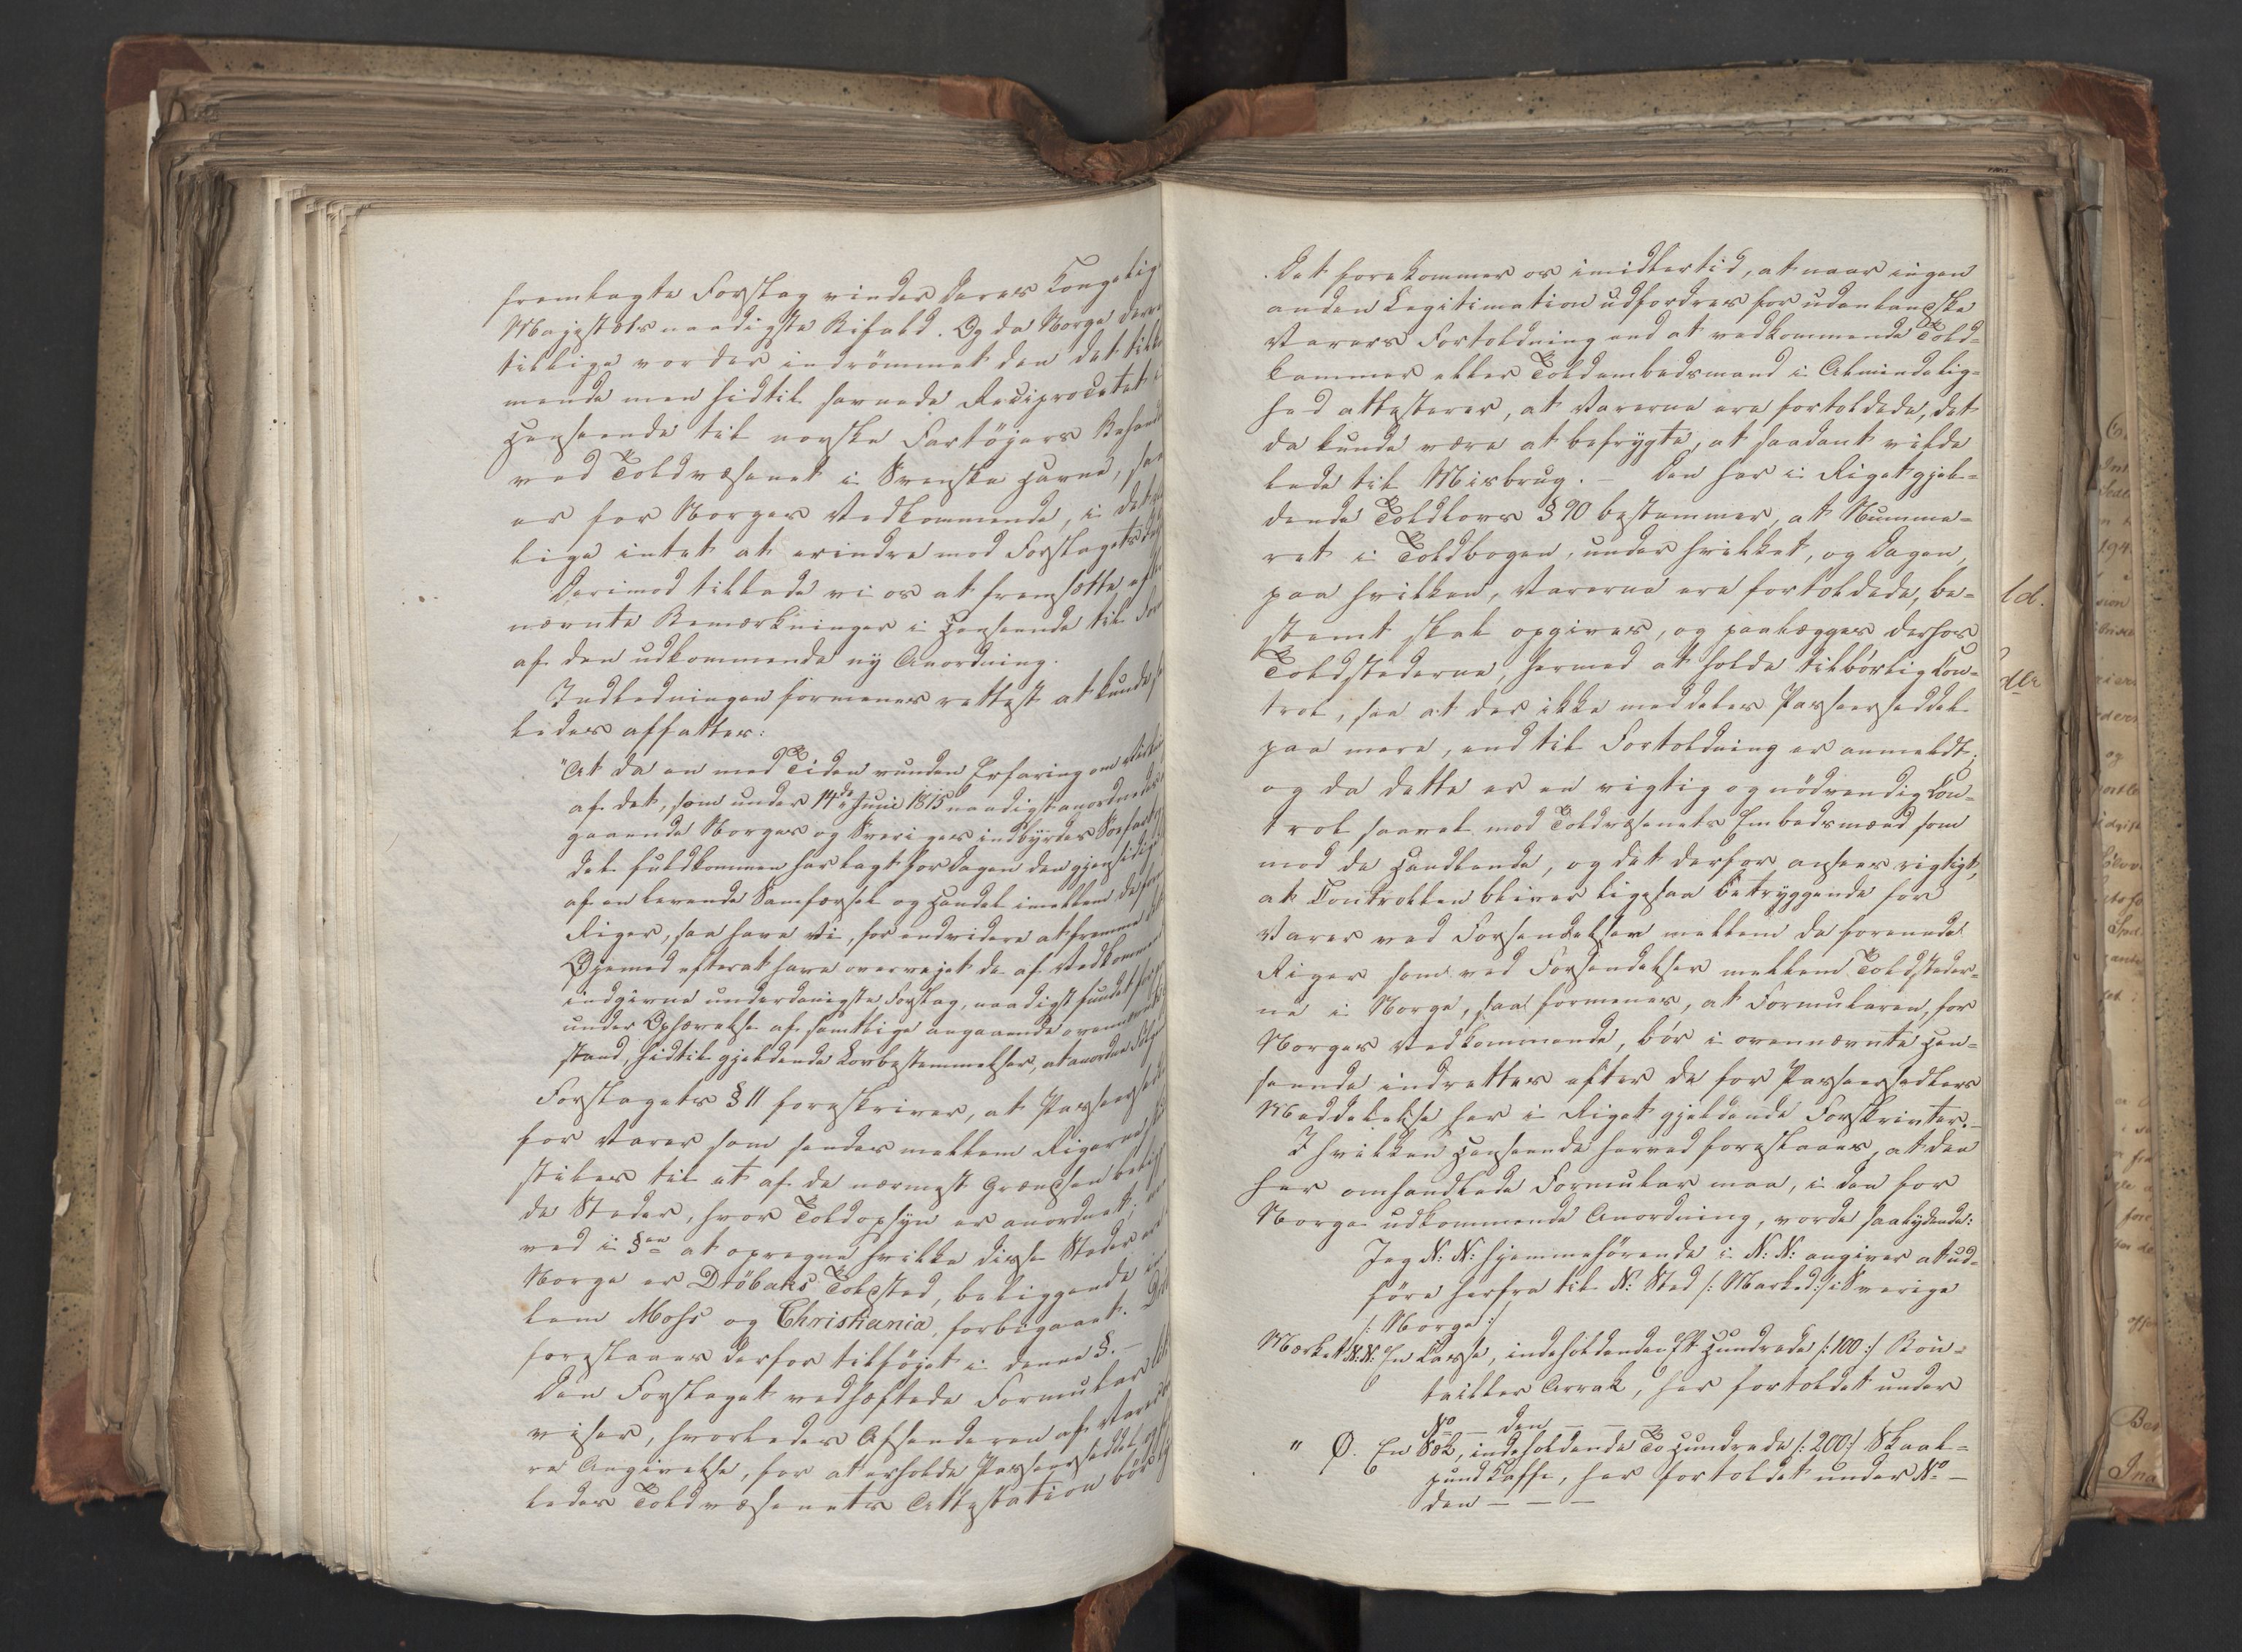 fremlagte Forslag vinder Deres Kongelig
Majestæts naadigste Bifald. Og da Norge derve
tillige vorder indrömmet den det tilko
mende men hidtil savnede Reciprocitet i
Henseende til norske Fartöjers Behand
ved Toldvæsenet i Svenske Havne, saa
er for Norges Vedkommende, i det
lige intet at erindre mod Forslagets
Derimod tillade vi os at fremsætte efter
nævnte Bemærkninger i Henseende til For
af den udkommende ny Anordning.
Indledningen formenes rettest at kunde
ledes affattes:
"At da en med Tiden vunden Erfaring om
af det, som under 14de Junii 1815 naadigst anordnedes
gaaende Norges og Sveriges indbyrdes Söefart
del fuldkommen har lagt for Dagen den gjensidige
af en levende Samfærsel og Handel imellem de for
Riger, saa have Vi, for endvidere at fremme
Öjemed efterat have overvejet de af Vedkommen
indgivne underdanigste Forslag, naadigst fundet for
under Ophævelse af samtlige angaaende ovennævnte
stand, hidtil gjeldende Lovbestemmelser, at anordne
Forslagets § 11 foreskriver, at Passeersedl
for Varer som sendes mellem Rigerne
stiles til et af de nærmest Grændsen belig
de Steder, hvor Toldopsyn er anordnet;
ved i §en at opregne hvilke disse Steder ere
Norge er Dröbaks Toldsted, beliggende i
lem Moss og Christiania, forbigaaet.
foreslaaes derfor tilföjet i denne §. –
Den Forslaget vedhæftede Formular
viser, hvorledes Afsenderen af Varer
re Angivelse, for at erholde Passeerseddel, og
ledes Toldvæsenets Attestation bör
Det forekommer os imidlertid, at naar ingen
anden Legitimation udfordres for udenlandske
Varers Fortoldning end at vedkommende Told=
kammer eller Toldembedsmand i Almindelig=
hed attesterer, at Varerne ere fortoldede, det
da kunde være at befrygte, at saadant vilde
lede til Misbrug. – Den her i Riget gjel=
dende Toldlovs § 90 bestemmer, at Numme=
ret i Toldbogen, under hvilket, og Dagen,
paa hvilken, Varerne ere fortoldede, be=
stemt skal opgives, og paalægges derhos
Toldstederne, hermed at holde tilbörlig Con=
trol, saa at der ikke meddeles Passeerseddel
paa mere, end til Fortoldning er anmeldt;
og da dette er en vigtig og nödvendig Con=
trol saavel mod Toldvæsenets Embedsmænd som
mod de Handlende, og det derfor ansees vigtigt,
at Controllen bliver ligesaa betryggende for
Varer ved Forsendelser mellem de forenede
Riger som ved Forsendelser mellem Toldsteder=
ne i Norge, saa formenes, at Formularen, for
Norges Vedkommende, bör i ovennævnte Hen=
seende indrettes efter de for Passeersedlers
Meddelelse her i Riget gjeldende Forskrivter. –
I hvilken Henseende herved foreslaaes, at den
her omhandlede Formular maa, i den for
Norge udkommende Anordning, vorde saalydende:
Jeg N: N: hjemmehörende i N: N: angiver at ud=
före herfra til N: Sted /: Marked :/ i Sverige
/: Norge :/
Mærket N: N: En Kasse, indeholdende Et Hundrede /: 100 :/ Bou=
teiller Arrak, her fortoldet under
No – den – – –
" Ö. En Sæk, indeholdende To Hundrede /: 200 :/ Skaal=
pund Kaffe, her fortoldet under No –
den – – –